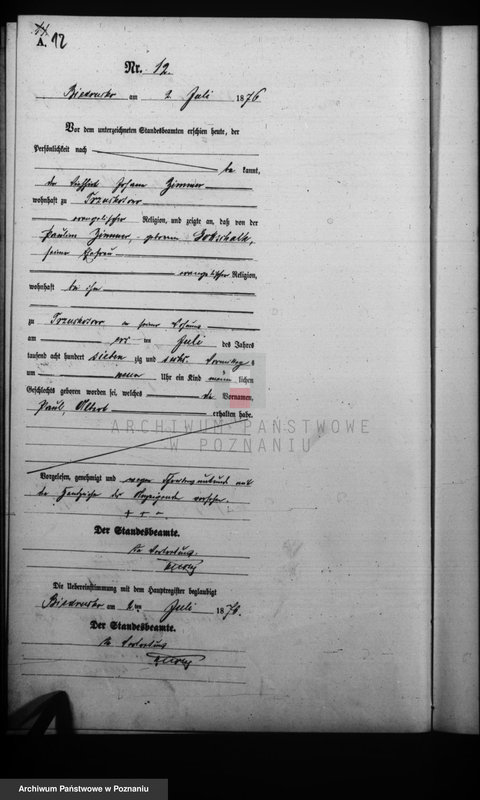 A. 12
Nr. 12.
Biedrusko am 2. Juli 1876
Vor dem unterzeichneten Standesbeamten erschien heute, der
Persönlichkeit nach
be kannt,
der Johann Zimmer
wohnhaft zu
evangelischer Religion, und zeigte an, daß von der
Pauline Zimmer, geborene Gottschalk,
seiner Ehefrau
evangelischer Religion,
wohnhaft bei ihm
zu in seiner Behausung
am ten Juli des Jahres
tausend acht hundert sieben zig und sechs Vormittags
um neun Uhr ein Kind männ lichen
Geschlechts geboren worden sei, welches die Vornamen,
Paul, Albert
erhalten habe.
ARCHIWUM PAŃSTWOWE
W POZNANIU
Vorgelesen, genehmigt und wegen Schreibensunkunde mit
den Handzeichen des Anzeigenden versehen.
+ + +
Der Standesbeamte.
In Vertretung.
Die Uebereinstimmung mit dem Hauptregister beglaubigt
Biedrusko am 2. ten Juli 1876.
Der Standesbeamte.
In Vertretung
Archiwum Państwowe w Poznaniu